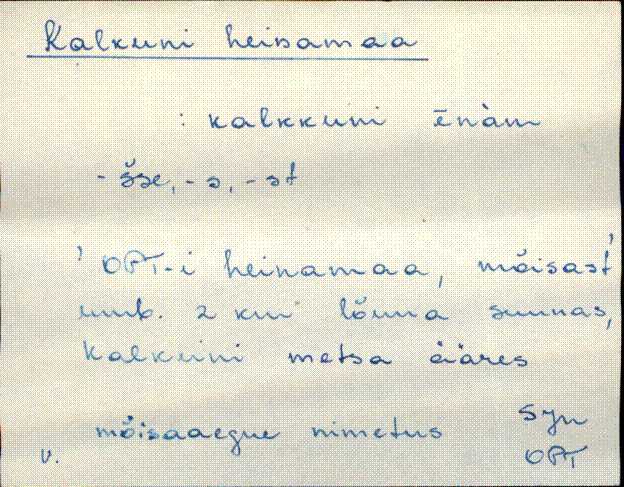 Kalkuni heinamaa
: kalkkuni ēnàm
- šse, - s, - st
! OPT-i heinamaa, mõisast
umb. 2 km lõuna suunas,
Kalkuni metsa ääres
mõisaaegne nimetus Syn
v. OPT